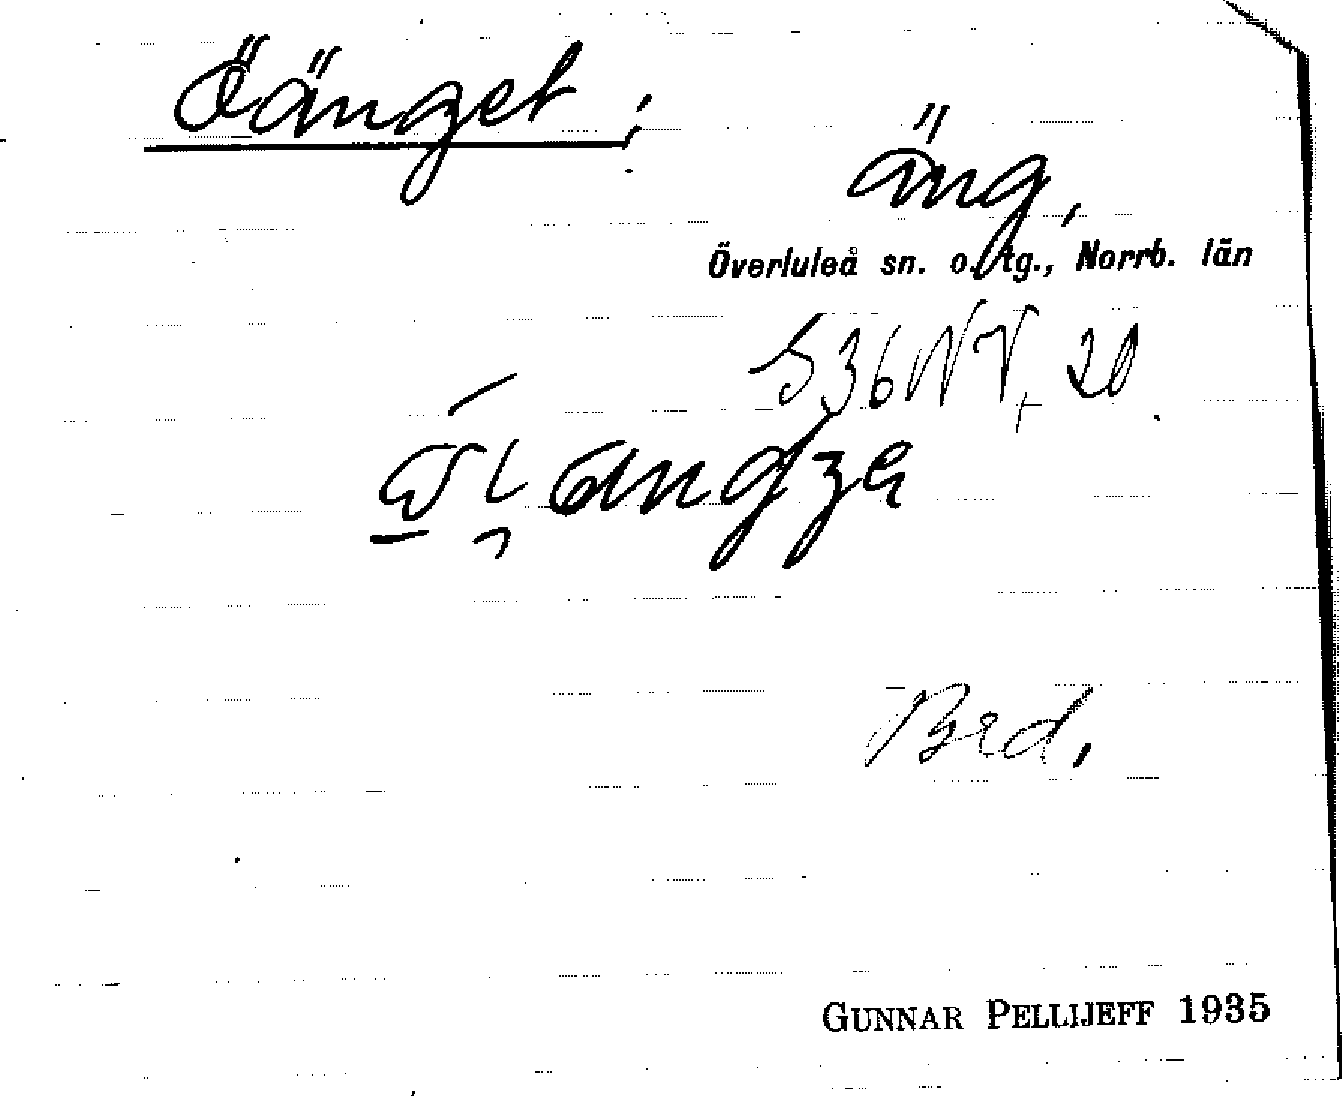 Öänget ;
äng,
Överluleå sn. o. tg., Norrb. län
S36NV, 20
Bred.
GUNNAR PELLIJEFF 1935